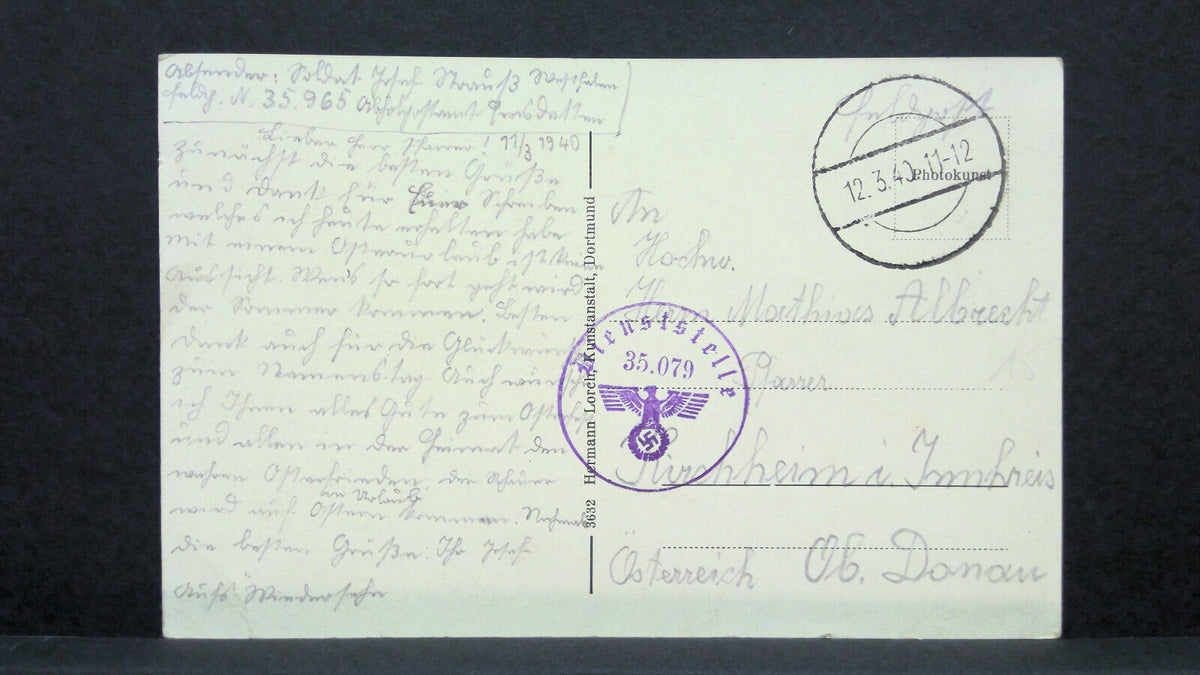 Absender: Soldat Josef Strauß Westfalen
Feldp. N. 35.965 Abholpostamt
Lieber Herr Pfarrer! 11/3 1940
zunächst die besten Grüße
und Dank für Euer Schreiben
welches ich heute erhalten habe
mit einem Osterurlaub ist keine
Aussicht. Wens so fort geht wird
der Sommer kommen. Besten
Dank auch für die Glückwünsche
zum Namenstag Auch wünsche
ich Ihnen alles Gute zum Osterfest
und allen in der Heimat den
wahren Osterfrieden. der
in Urlaub
wird auf Ostern kommen. Nochmals
die besten Grüße: Ihr Josef
Aufs Wiedersehn
3632 Hermann Lorch, Kunstanstalt, Dortmund
Feldpost
12.3.40.11-12
Photokunst
An
Hochw.
Herrn Mathias Albrecht
Pfarrer
Kirchheim i Innkreis
Österreich Ob. Donau
Dienststelle
35.079